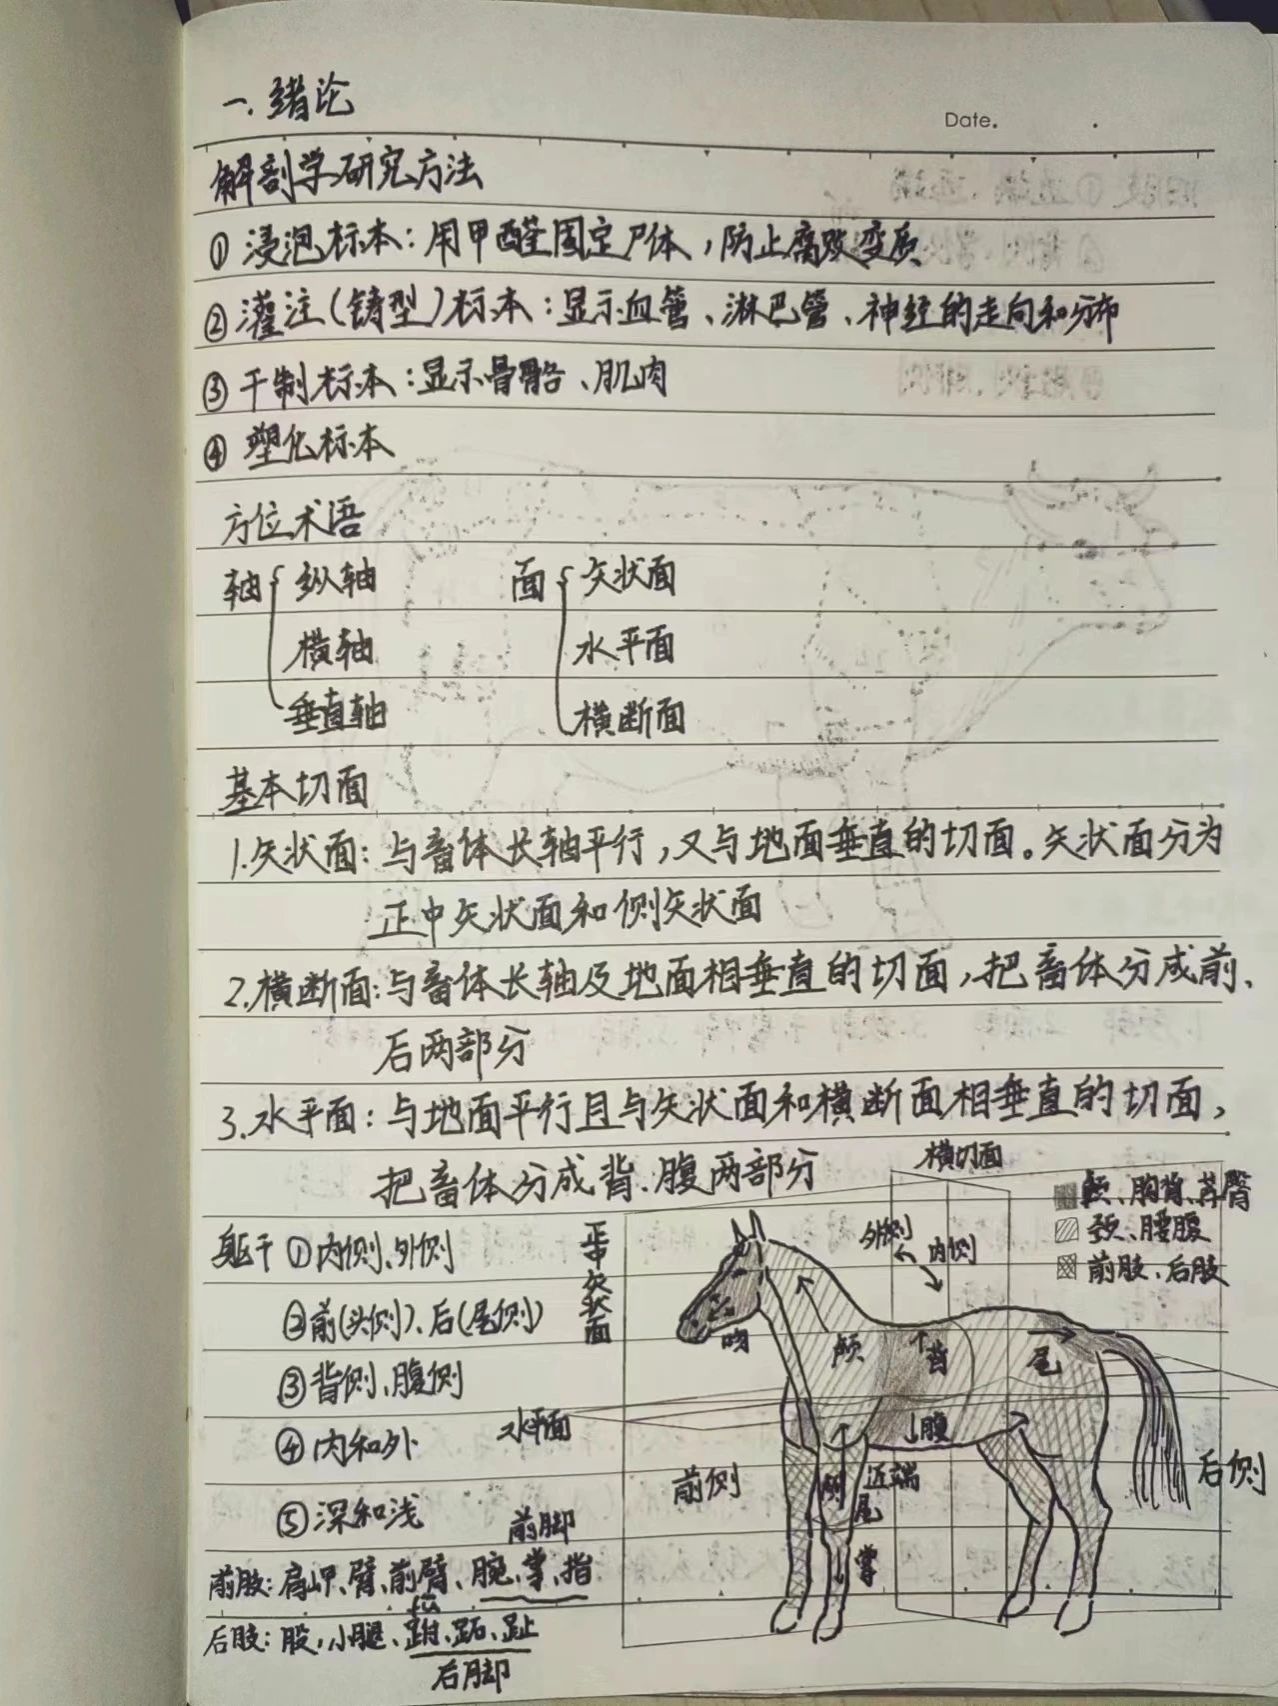 一.绪论
Date.
解剖学研究方法
① 浸泡标本：用甲醛固定尸体，防止腐败变质
② 灌注(铸型)标本：显示血管、淋巴管、神经的走向和分布
③ 干制标本：显示骨骼、肌肉
④ 塑化标本
方位术语
轴 纵轴 面 矢状面
横轴 水平面
垂直轴 横断面
基本切面
1.矢状面：与畜体长轴平行，又与地面垂直的切面。矢状面分为
正中矢状面和侧矢状面
2.横断面：与畜体长轴及地面相垂直的切面，把畜体分成前、
后两部分
3.水平面：与地面平行且与矢状面和横断面相垂直的切面，
把畜体分成背、腹两部分
横切面
、胸背、荐臀
颈、腰腹
前肢、后肢
躯干 ①内侧、外侧
②前(头侧)、后(尾侧)
③背侧、腹侧
④内和外
⑤深和浅
正中矢状面
外侧
内侧
吻
颅
背
尾
水平面
腹
前侧
侧
近端
尾
后侧
掌
前脚
前肢：肩胛、臂、前臂、腕、掌、指
后肢：股、小腿、跗、跖、趾
后脚